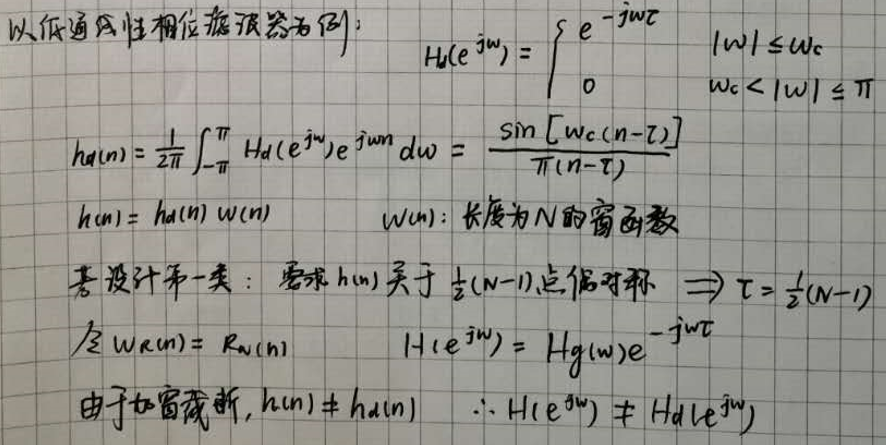 以低通线性相位滤波器为例:
Hd(e^{jw}) = { e^{-jwτ} |w| ≤ wc
0 wc < |w| ≤ π
hd(n) = \frac{1}{2π} ∫_{-π}^{π} Hd(e^{jw})e^{jwn} dw = \frac{sin[wc(n-τ)]}{π(n-τ)}
h(n) = hd(n) w(n) w(n): 长度为N的窗函数
若设计第一类: 要求h(n)关于 \frac{1}{2}(N-1)点偶对称 ⟹ τ = \frac{1}{2}(N-1)
令 wR(n) = RN(n) H(e^{jw}) = Hg(w)e^{-jwτ}
由于加窗截断, h(n) ≠ hd(n) ∴ H(e^{jw}) ≠ Hd(e^{jw})